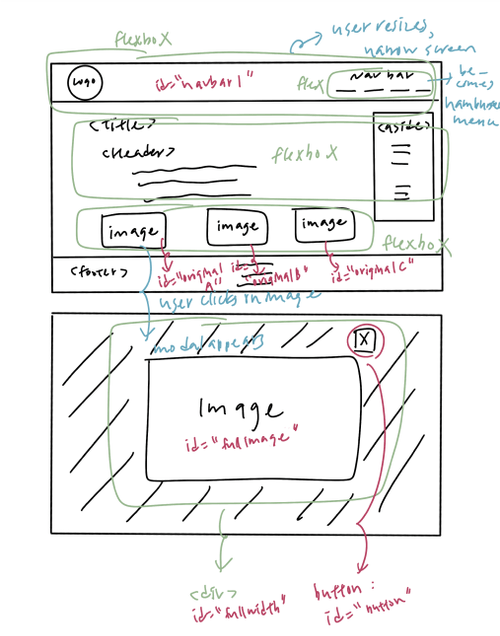 flexbox
user resizes,
narrow screen
Logo
id="navbar1"
flex
navbar
be-
comes
hamburger
menu
<Title>
<Header>
flexbox
<aside>
image
image
image
flexbox
<footer>
id="original
A"
id=
"originalB"
id="originalC"
user clicks on image
modal appears
X
Image
id="fullImage"
<div>
id="fullwidth"
button:
id="button"